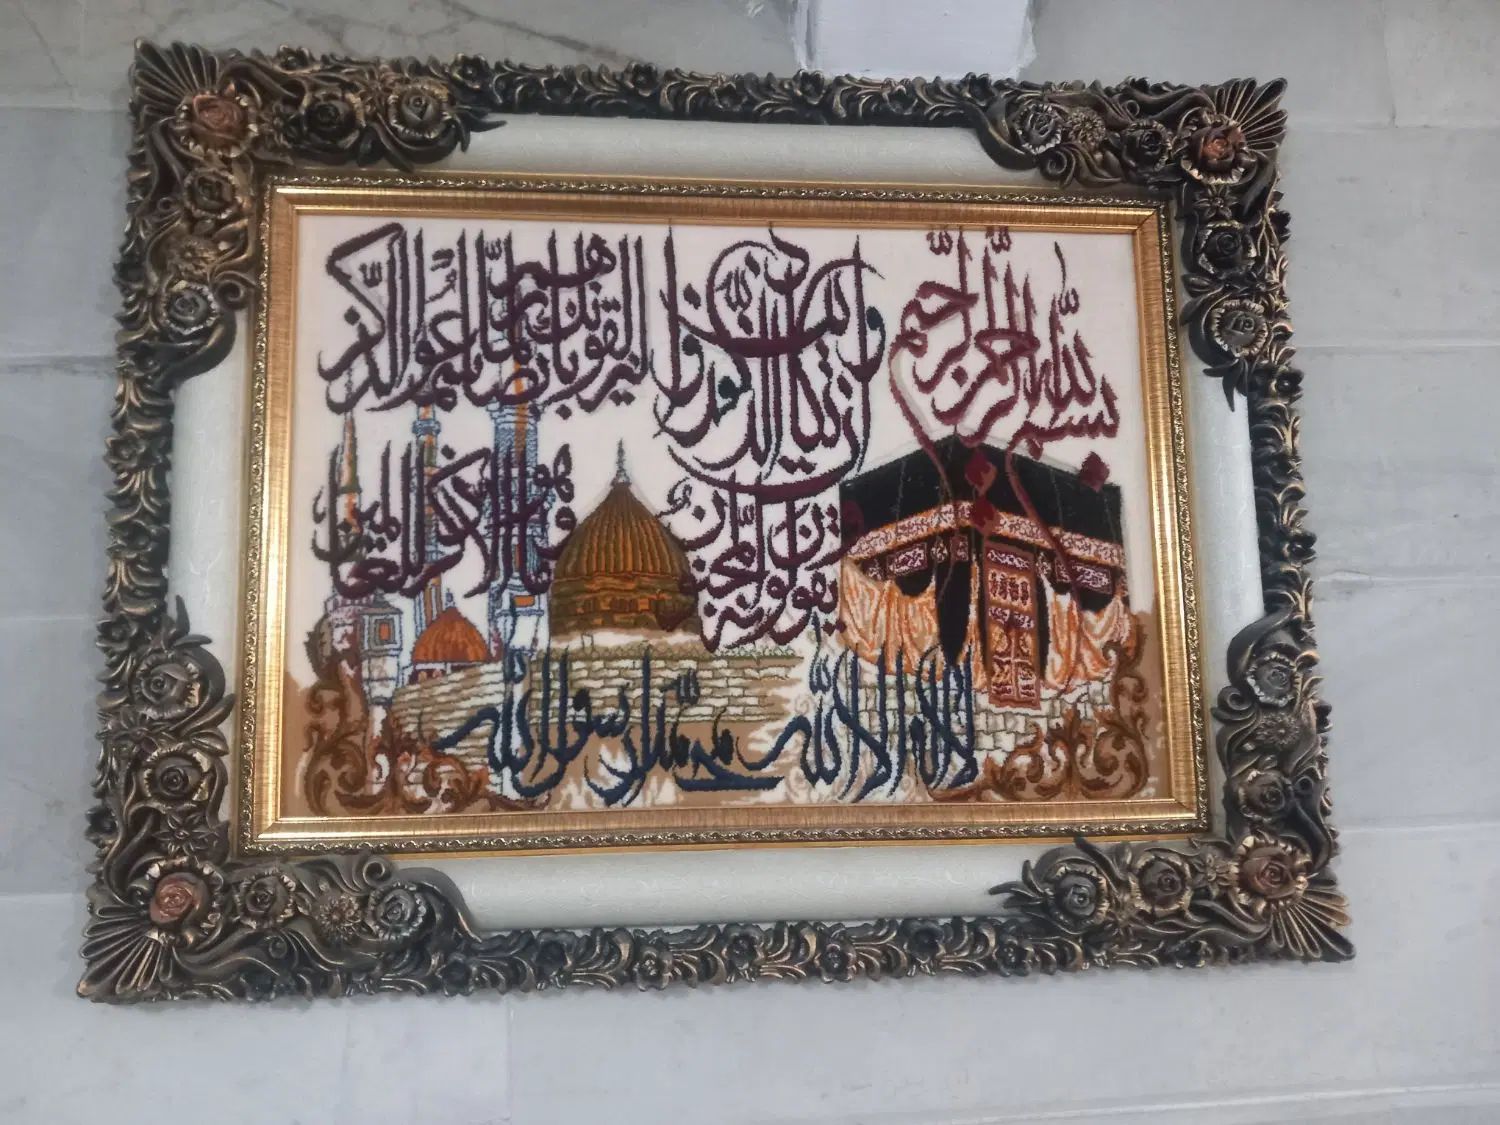 بسم الله الرحمن الرحيم
وإن يكاد الذين كفروا
ليزلقونك بأبصارهم لما سمعوا الذكر
ويقولون إنه لمجنون
وما هو إلا ذكر للعالمين
لا إله إلا الله محمد رسول الله